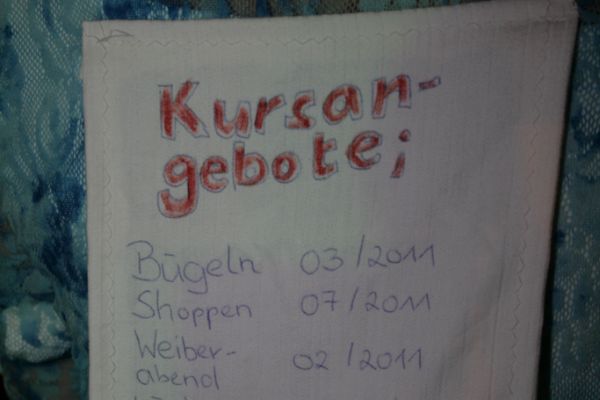 Kursan-
gebote;
Bügeln 03/2011
Shoppen 07/2011
Weiber- 02/2011
abend